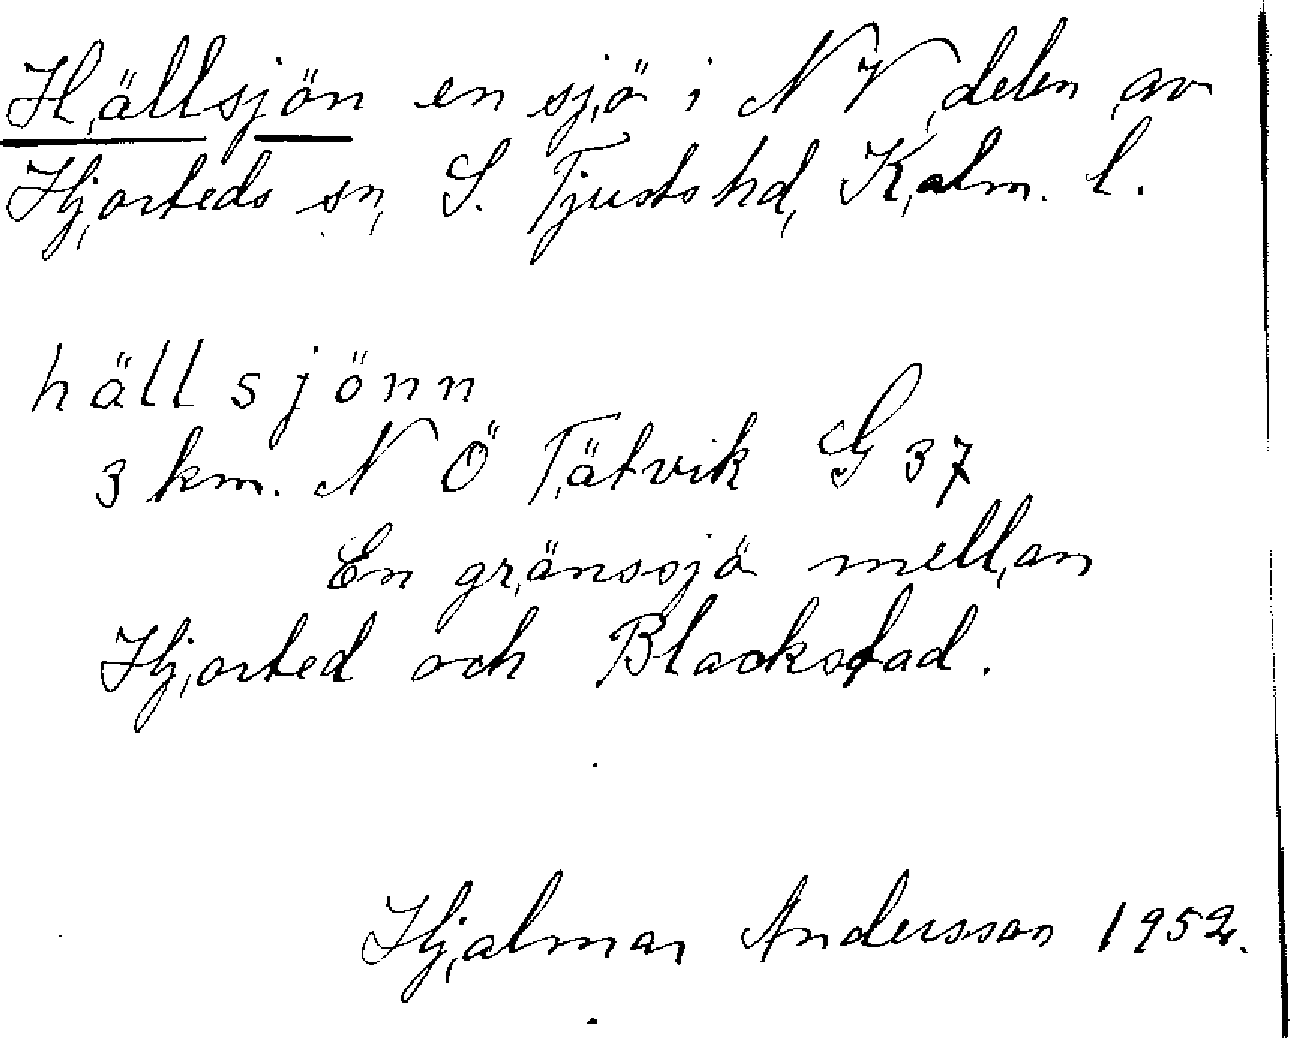 Hällsjön en sjö i NV delen av
Hjorteds sn, S. Tjusts hd, Kalm. l.
hällsjönn
3 km. N Ö Tätvik G 37
En gränssjö mellan
Hjorted och Blackstad.
Hjalmar Andersson 1952.